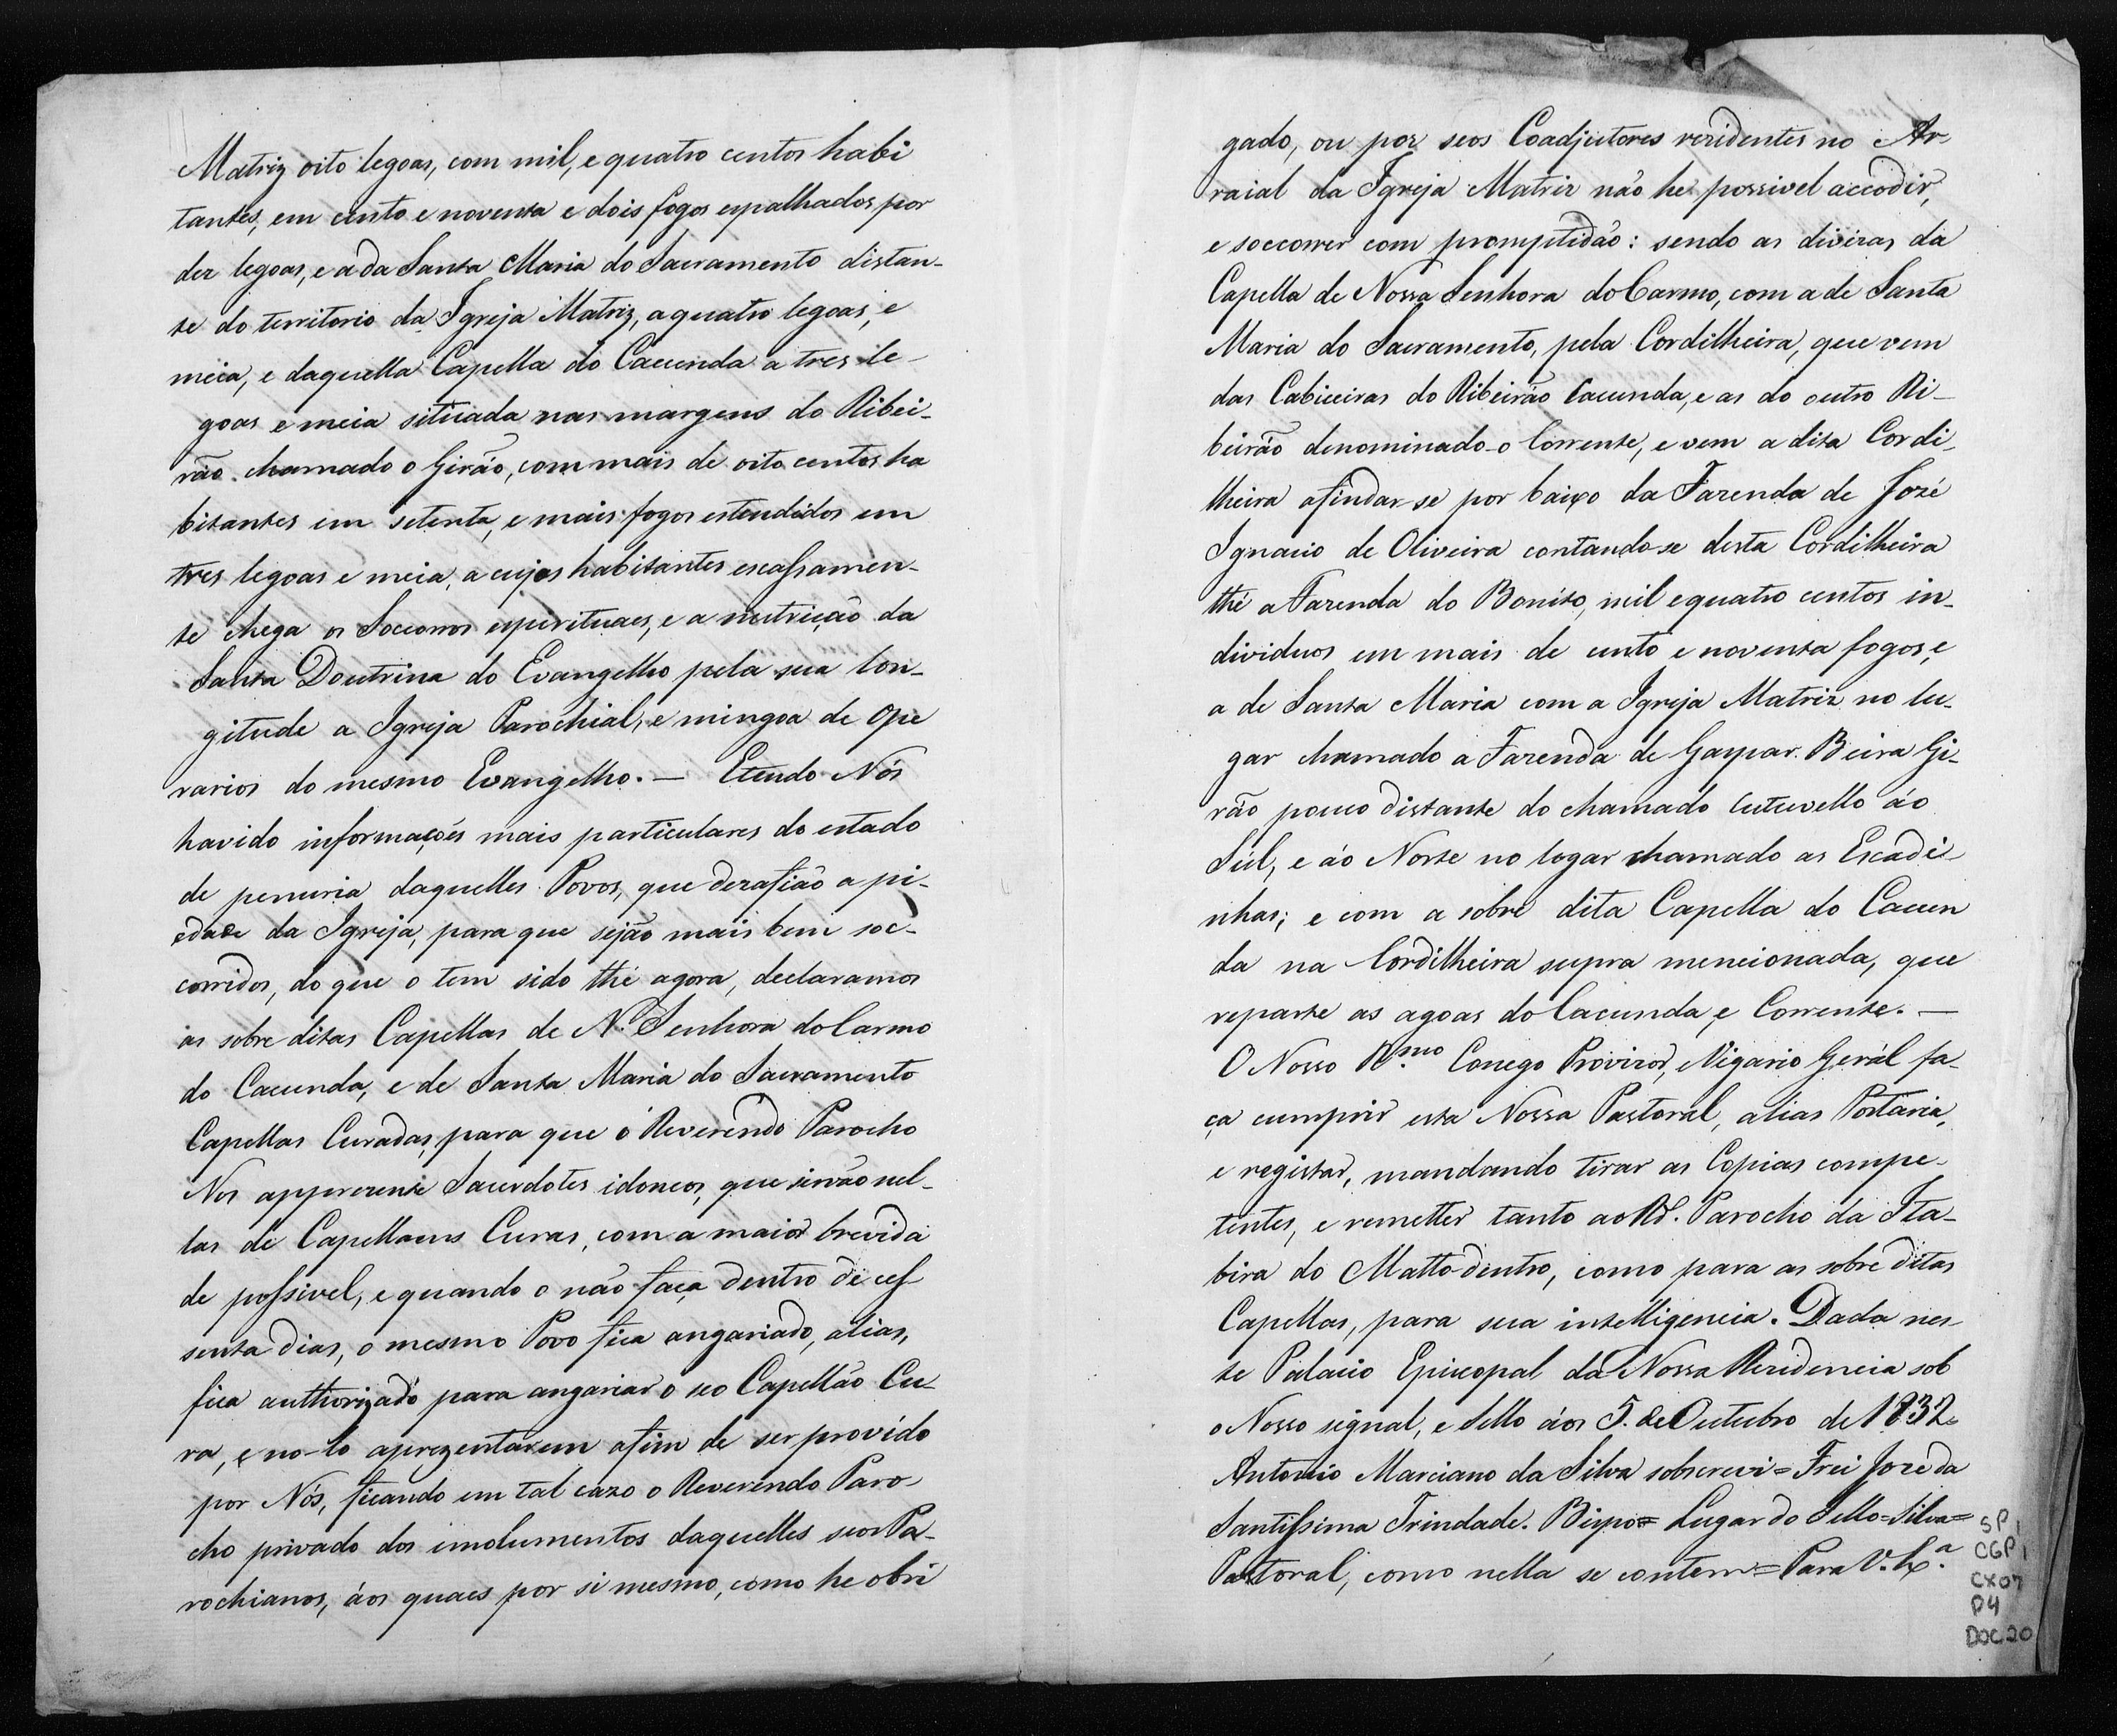 Matriz oito legoas, com mil, e quatro centos habi
tantes, em cento e noventa e dois fogos espalhados por
dez legoas, e a da Santa Maria do Sacramento distan-
te do territorio da Igreja Matriz, a quatro legoas, e
meia, e daquella Capella do Cacunda a tres le-
goas e meia situada nas margens do Ribei-
rão chamado o Girão, com mais de oito centos ha
bitantes em setenta, e mais fogos estendidos em
tres legoas e meia, a cujos habitantes escassamen-
te chega os Soccorros espirituaes, e a nutrição da
Santa Doutrina do Evangelho pela sua lon-
gitude a Igreja Parochial, e mingoa de Ope
rarios do mesmo Evangelho. — E tendo Nós
havido informações mais particulares do estado
de penuria daquelles Povos, que dezafião a pi-
edade da Igreja, para que sejão mais bem soc-
corridos, do que o tem sido thé agora, declaramos
as sobre ditas Capellas de N. Senhora do Carmo
do Cacunda, e de Santa Maria do Sacramento
Capellas Curadas, para que o Reverendo Parocho
Nos apprezente Sacerdotes idoneos, que sirvão nel-
las de Capellaens Curas, com a maior brevida
de possivel, e quando o não faça dentro de ses
senta dias, o mesmo Povo fica angariado, alias,
fica authorizado para angariar o seo Capellão Cu-
ra, e no-lo aprezentarem afim de ser provído
por Nós, ficando em tal cazo o Reverendo Paro-
cho privado dos imolumentos daquelles seos Pa-
rochianos, áos quaes por si mesmo, como he obri
gado, ou por seos Coadjutores rezidentes no Ar-
raial da Igreja Matriz não he possivel accodir,
e soccorrer com promptidão: sendo as divizas da
Capella de Nossa Senhora do Carmo, com a de Santa
Maria do Sacramento, pela Cordilheira, que vem
das Cabiceiras do Ribeirão Cacunda, e as do outro Ri-
beirão denominado o Corrente, e vem a dita Cordi-
lheira afindar-se por baixo da Fazenda de Jozé
Ignacio de Oliveira contando-se desta Cordilheira
thé a Fazenda do Bonito, mil e quatro centos in-
dividuos em mais de cento e noventa fogos, e
a de Santa Maria com a Igreja Matriz no lu-
gar chamado a Fazenda de Gaspar. Beira Gi-
rão pouco distante do chamado Cutuvello áo
Súl, e áo Norte no logar chamado as Escadi-
nhas; e com a sobre dita Capella do Cacun
da na Cordilheira supra mencionada, que
reparte as agoas do Cacunda, e Corrente. —
O Nosso R.mo Conego Provizor, e Vigario Gerál fa-
ça cumprir esta Nossa Pastoral, alias Portaria,
e registar, mandando tirar as Copias compe-
tentes, e remetter tanto ao Rd. Parocho da Ita-
bira do Matto-dentro, como para as sobre ditas
Capellas, para sua intelligencia. Dada nes-
te Palacio Episcopal da Nossa Rezidencia sob
o Nosso signal, e Sello áos 5. de Outubro de 1832.
Antonio Marciano da Silva sobscrevi = Frei Jozé da
Santissima Trindade. Bispo = Lugar do Sello = Silva =
Pastoral, como nella se contem = Para V. Ex.ª
SP 1
CGP 1
CX 07
P4
DOC 20